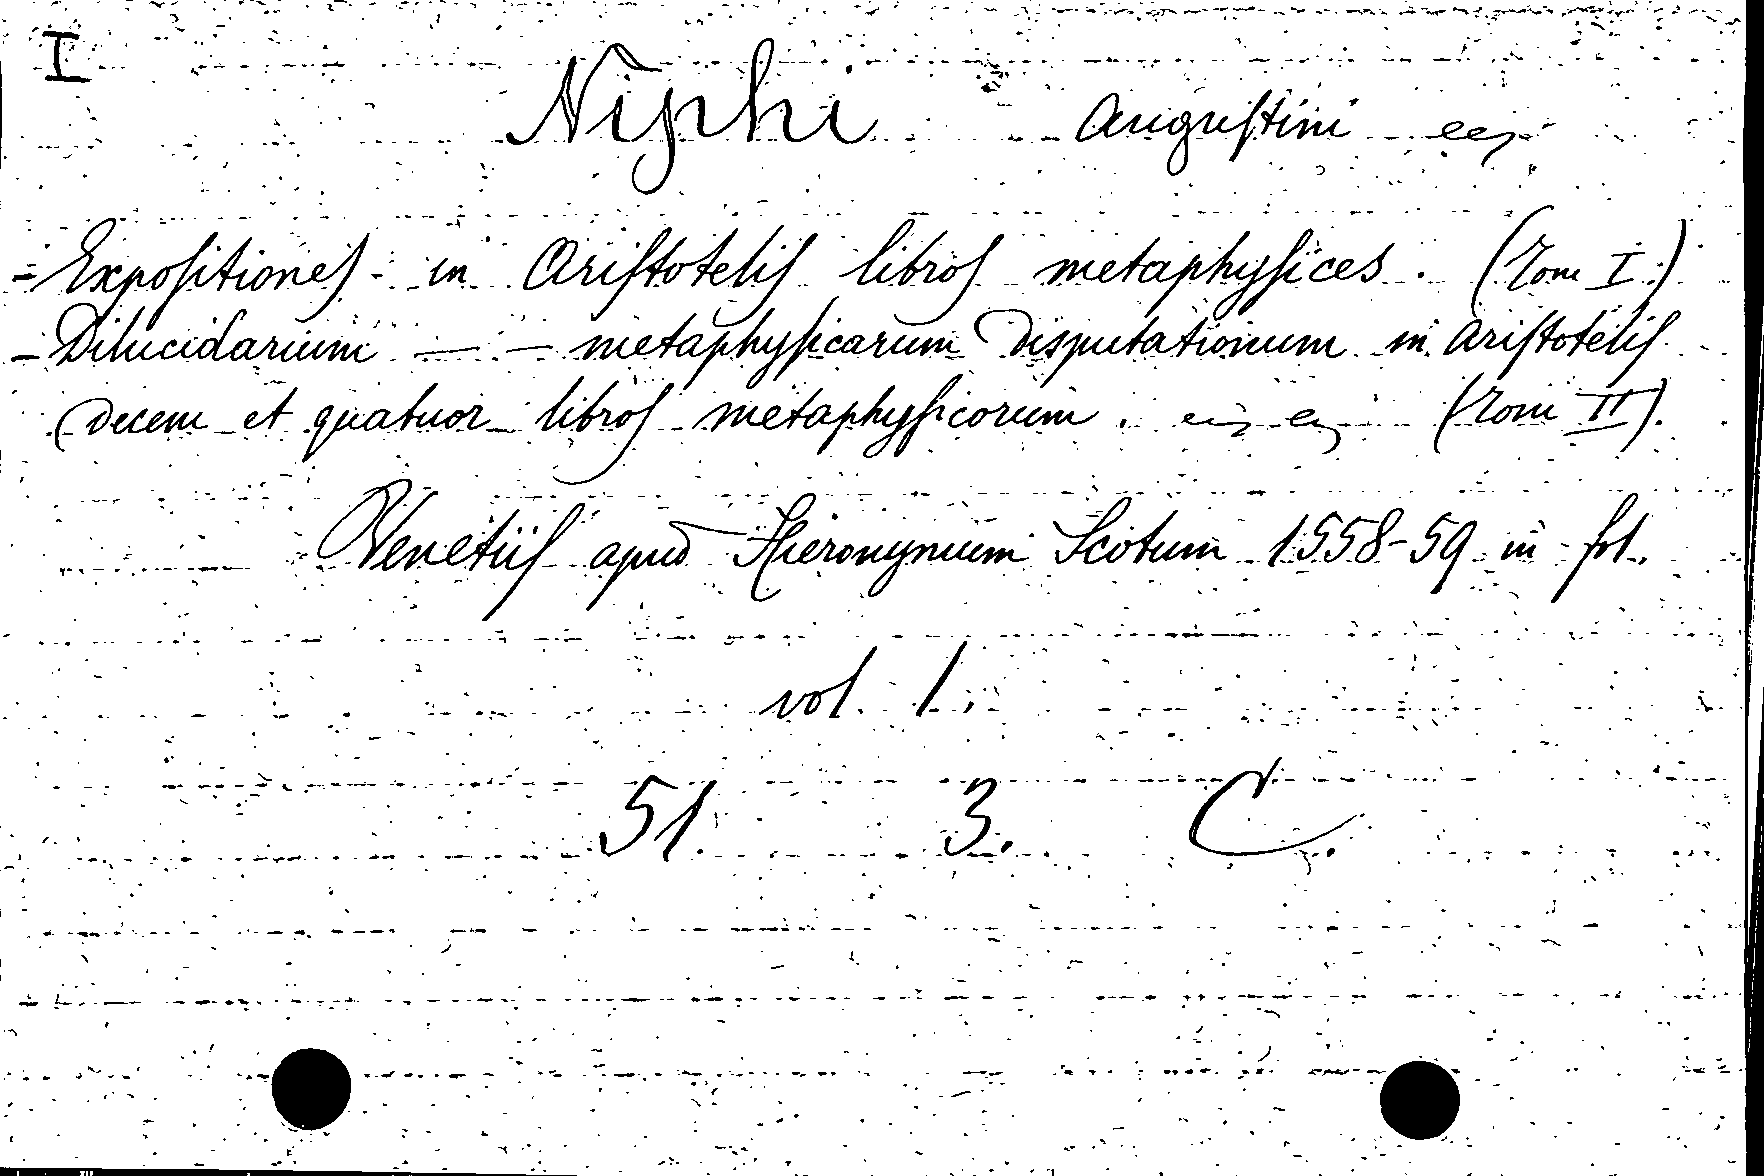 I
Niphi Augustini
- Expositiones - in Aristotelis libros metaphysices. (Tom I.)
- Dilucidarium — — metaphysicarum disputationum in Aristotelis
decem et quatuor libros metaphysicorum. (Tom II).
Venetiis apud Hieronymum Scotum 1558-59 in fol.
vol. 1.
51. 3. C.